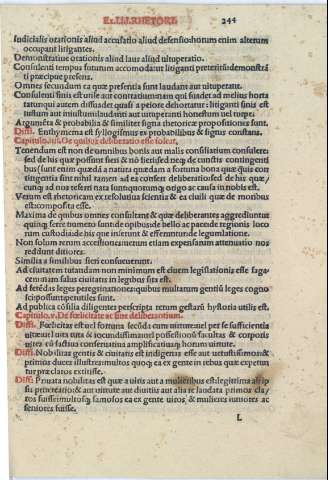 EX.LI.I.RHETORI. 244
Iudicialis orationis aliud accusatio aliud defensio horum enim alterum
occupant litigantes.
Demonstratiuę orationis aliud laus aliud uituperatio.
Consulenti tempus futurum accomodatur litiganti preteritū demonstrā
ti pręcipue presens.
Omnes secundum ea quæ presentia sunt laudant aut uituperant.
Consulenti finis est utile aut contrarium nam qui suadet ad melius horta
tatur qui autem dissuadet quasi a peiore dehortatur: litiganti finis est
iustum aut iniustum laudanti aut uituperanti honestum uel turpe.
Argumēta & probabilia & similiter signa rhetoricę propositiones sunt.
Diffi. Enthymema est syllogismus ex probabilibus & signis constans.
Capitulo.iiii. De quibus deliberatio esse solet.
Tenendum est non de omnibus bonis aut malis consiliatium consulere:
sed de his quæ possunt fieri & nō fieri: sed neq; de cunctis contingenti
bus (sunt enim quædā a natura quædam a fortuna bona quæ quis con
tingentia sint nihil tamen ad ea conferr deliberatio) sed de his quæ
cunq; ad nos referri nata sunt quorumq; origo ac causa in nobis est.
Verum est rhetoricam ex resolutiua scientia & ea ciuili quæ de moribus
est: composita esse.
Maxima de quibus omnes consultant & quæ deliberantes aggrediuntur
quinq; fere numero sunt: de opibus de bello ac pace de regionis loco
rum custodia de his quæ inferunt & efferuntur de legumlatione.
Non solum rerum accestiones: uerum etiam expensarum attenuatio nos
reddunt ditiores.
Similia a similibus fieri consueuerunt.
Ad ciuitatem tutandam non minimum est eluerem legislationis esse saga
cem: nam salus ciuitatis in legibus sita est.
Ad ferēdas leges peregrinationes: quibus multarum gentiū leges cogno
sci possunt perutiles sunt.
Ad publica cōsilia diligenter perscripta rerum gestarū hystoria utilis est.
Capitulo.v. De fœlicitate ac fine deliberantium.
Diffi. Fœlicitas est uel fortuna secūda cum uirtute: uel per se sufficientia
uitæ: uel uita tuta & iocundissima: uel possessionū facultas & corporis
uires cū factiua conseruatiua amplificatiuaq; horum uirtute.
Diffi. Nobilitas gentis & ciuitatis est indigenas esse aut uetustissimos: &
primos duces illustres: multos quoq; ea ex gente in rebus quæ expetun
tur præclaros extitisse.
Diffi. Priuata nobilitas est quæ a uiris aut a mulieribus est: legitima ab ip
sis procreatio: & aut uirtute aut diuitiis aut alia re laudata primos cla
ros fuisse: multosq; famosos ea ex gente uiros; & mulieres iuniores ac
seniores fuisse.
L